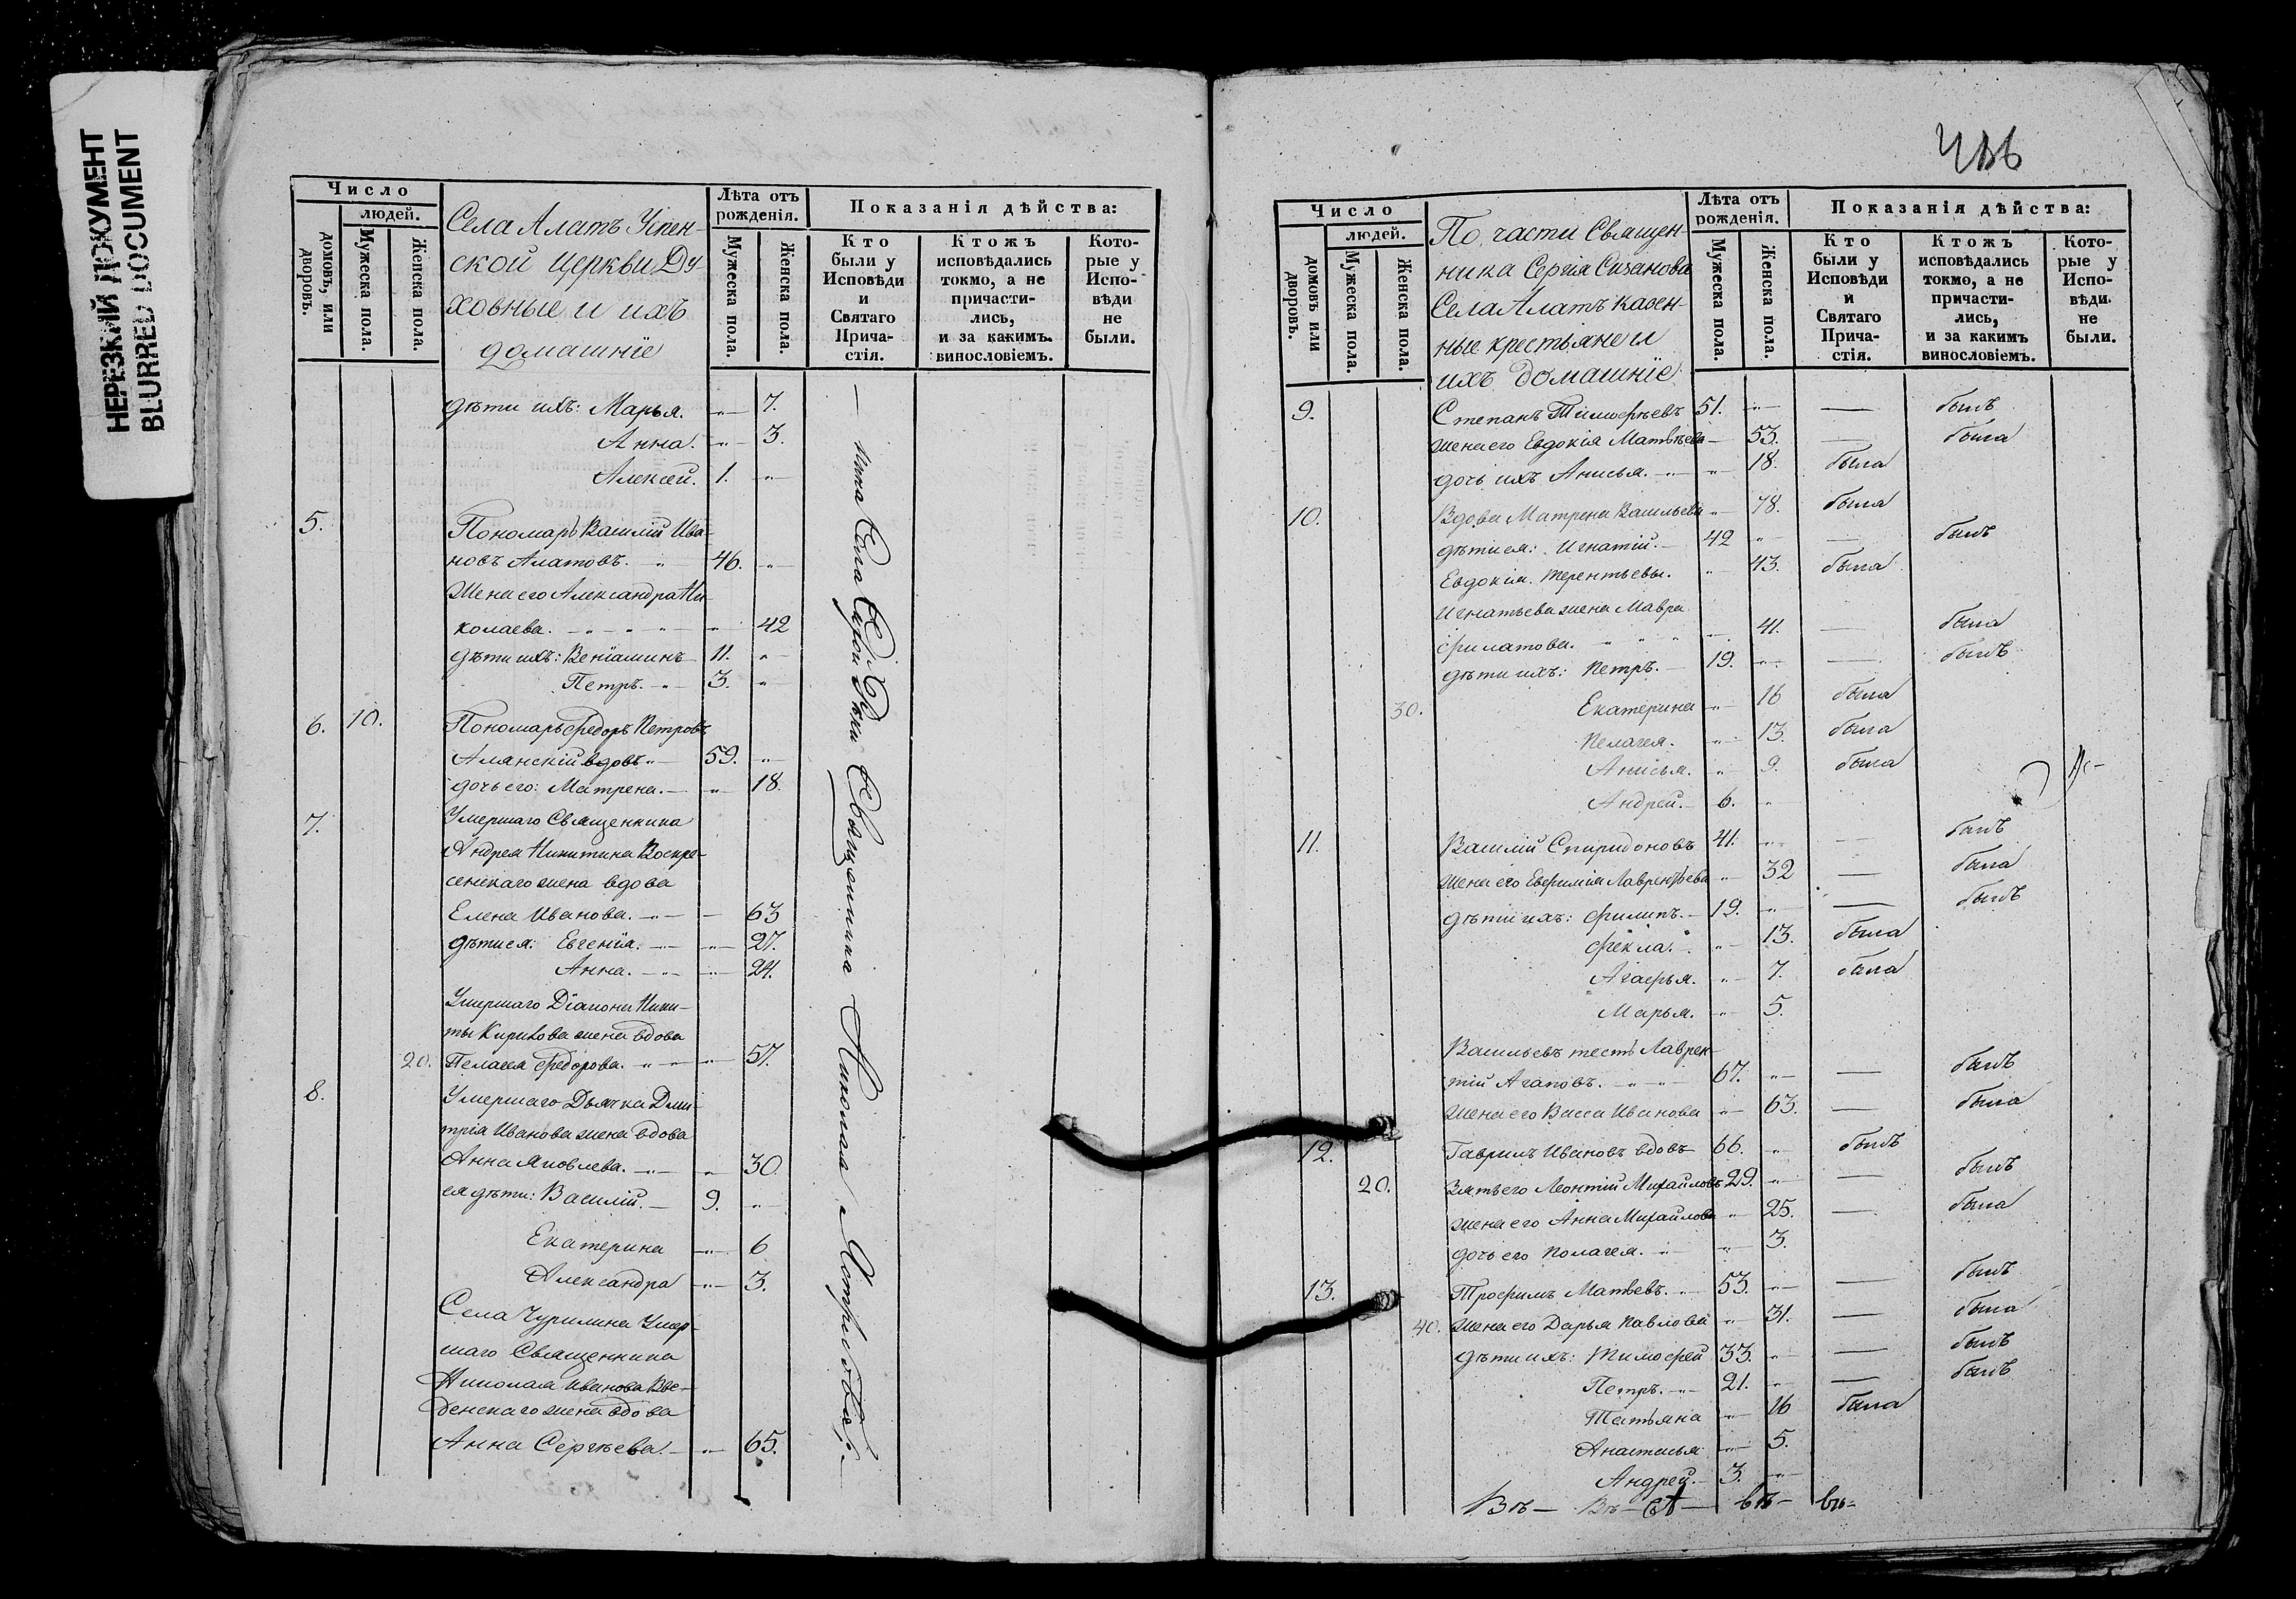 НЕРЕЗКИЙ ДОКУМЕНТ
BLURRED DOCUMENT
Число
людей.
домовъ, или дворовъ.
Мужеска пола.
Женска пола.
Села Алатъ Успен-
ской церкви Ду-
ховные и ихъ
домашніе
Лѣта отъ рожденія.
Мужеска пола.
Женска пола.
Показанія дѣйства:
Кто были у Исповѣди и Святаго Прича-стія.
Ктожъ исповѣдались токмо, а не причасти-лись, и за какимъ винословіемъ.
Кото-рые у Испо-вѣди не были.
дѣти ихъ: Марья. -"- 7.
Анна. -"- 3.
Алексей. 1. -"-
5. Пономарь Василій Ива-
новъ Алатовъ. -"- 46. -"-
Жена его Александра Ни-
колаева. -"- 42
дѣти ихъ: Веніаминъ 11. "
Петръ. -"- 3. -"-
6. 10. Пономарь Федоръ Петровъ
Алянскій вдовъ -"- 59. -"-
дочь его: Матрена. -"- 18.
7. Умершаго Священника
Андрея Никитина Воскре-
сенскаго жена вдова
Елена Иванова. -"- 63
дѣти ея: Евгенія. -"- 27.
Анна. -"- 24.
Умершаго Діакона Ники-
ты Кирикова жена вдова
20. Пелагея Федорова. -"- 57.
8. Умершаго Дьячка Дми-
трія Иванова жена вдова
Анна Яковлева. -"- 30
ея дѣти: Василій. 9. -"-
Екатерина -"- 6
Александра -"- 3.
Села Чурилина Умер-
шаго Священника
Николая Иванова Вве-
денскаго жена вдова
Анна Сергѣева. -"- 65.
Села Священника Николая
436
Число
людей.
домовъ или дворовъ.
Мужеска пола.
Женска пола.
По части Священ-
ника Сергія Сизанова
Села Алатъ казен-
ные крестьяне и
ихъ домашніе
Лѣта отъ рожденія.
Мужеска пола.
Женска пола.
Показанія дѣйства:
Кто были у Исповѣди и Святаго Прича-стія.
Ктожъ исповѣдались токмо, а не причасти-лись, и за какимъ винословіемъ.
Кото-рые у Испо-вѣди не были.
9. Степанъ Тимофѣевъ 51. -"- — былъ
жена его Евдокія Матвѣева 53. — была
дочь ихъ Анисья. -"- 18. была
10. Вдова Матрена Васильева -"- 78. была
дѣти ея: Игнатій. 42 " — былъ
Евдокія. Терентьевы. -"- 43. была
Игнатьева жена Мавра
Филатова. -"- 41. — была
дѣти ихъ: Петръ. 19. -"- — былъ
30. Екатерина -"- 16 была
Пелагея. -"- 13. была
Анисья. -"- 9. была
Андрей. 6. -"-
11. Василій Спиридоновъ 41. -"- — былъ
жена его Евфимія Лаврентьева -"- 32 — была
дѣти ихъ: Филипъ. 19. -"- — былъ
Фекла. -"- 13. была
Агафья. -"- 7. была
Марья. -"- 5.
Васильевъ тесть Лаврен-
тій Агаповъ. -"- 67. -"- — былъ
жена его Васса Иванова -"- 63. — была
12. Гаврилъ Ивановъ вдовъ 66. " былъ
20. Зять его Леонтій Михайловъ 29. -"- — былъ
жена его Анна Михайлова -"- 25. — была
дочь его Полагея. -"- 3.
13. Трофимъ Матвевъ. -"- 53. -"- — былъ
40. жена его Дарья Павлова -"- 31. — была
дѣти ихъ: Тимофей 33. -"- — былъ
Петръ. -"- 21. -"- — былъ
Татьяна -"- 16 была
Анастасья -"- 5.
Андрей. 3. -"-